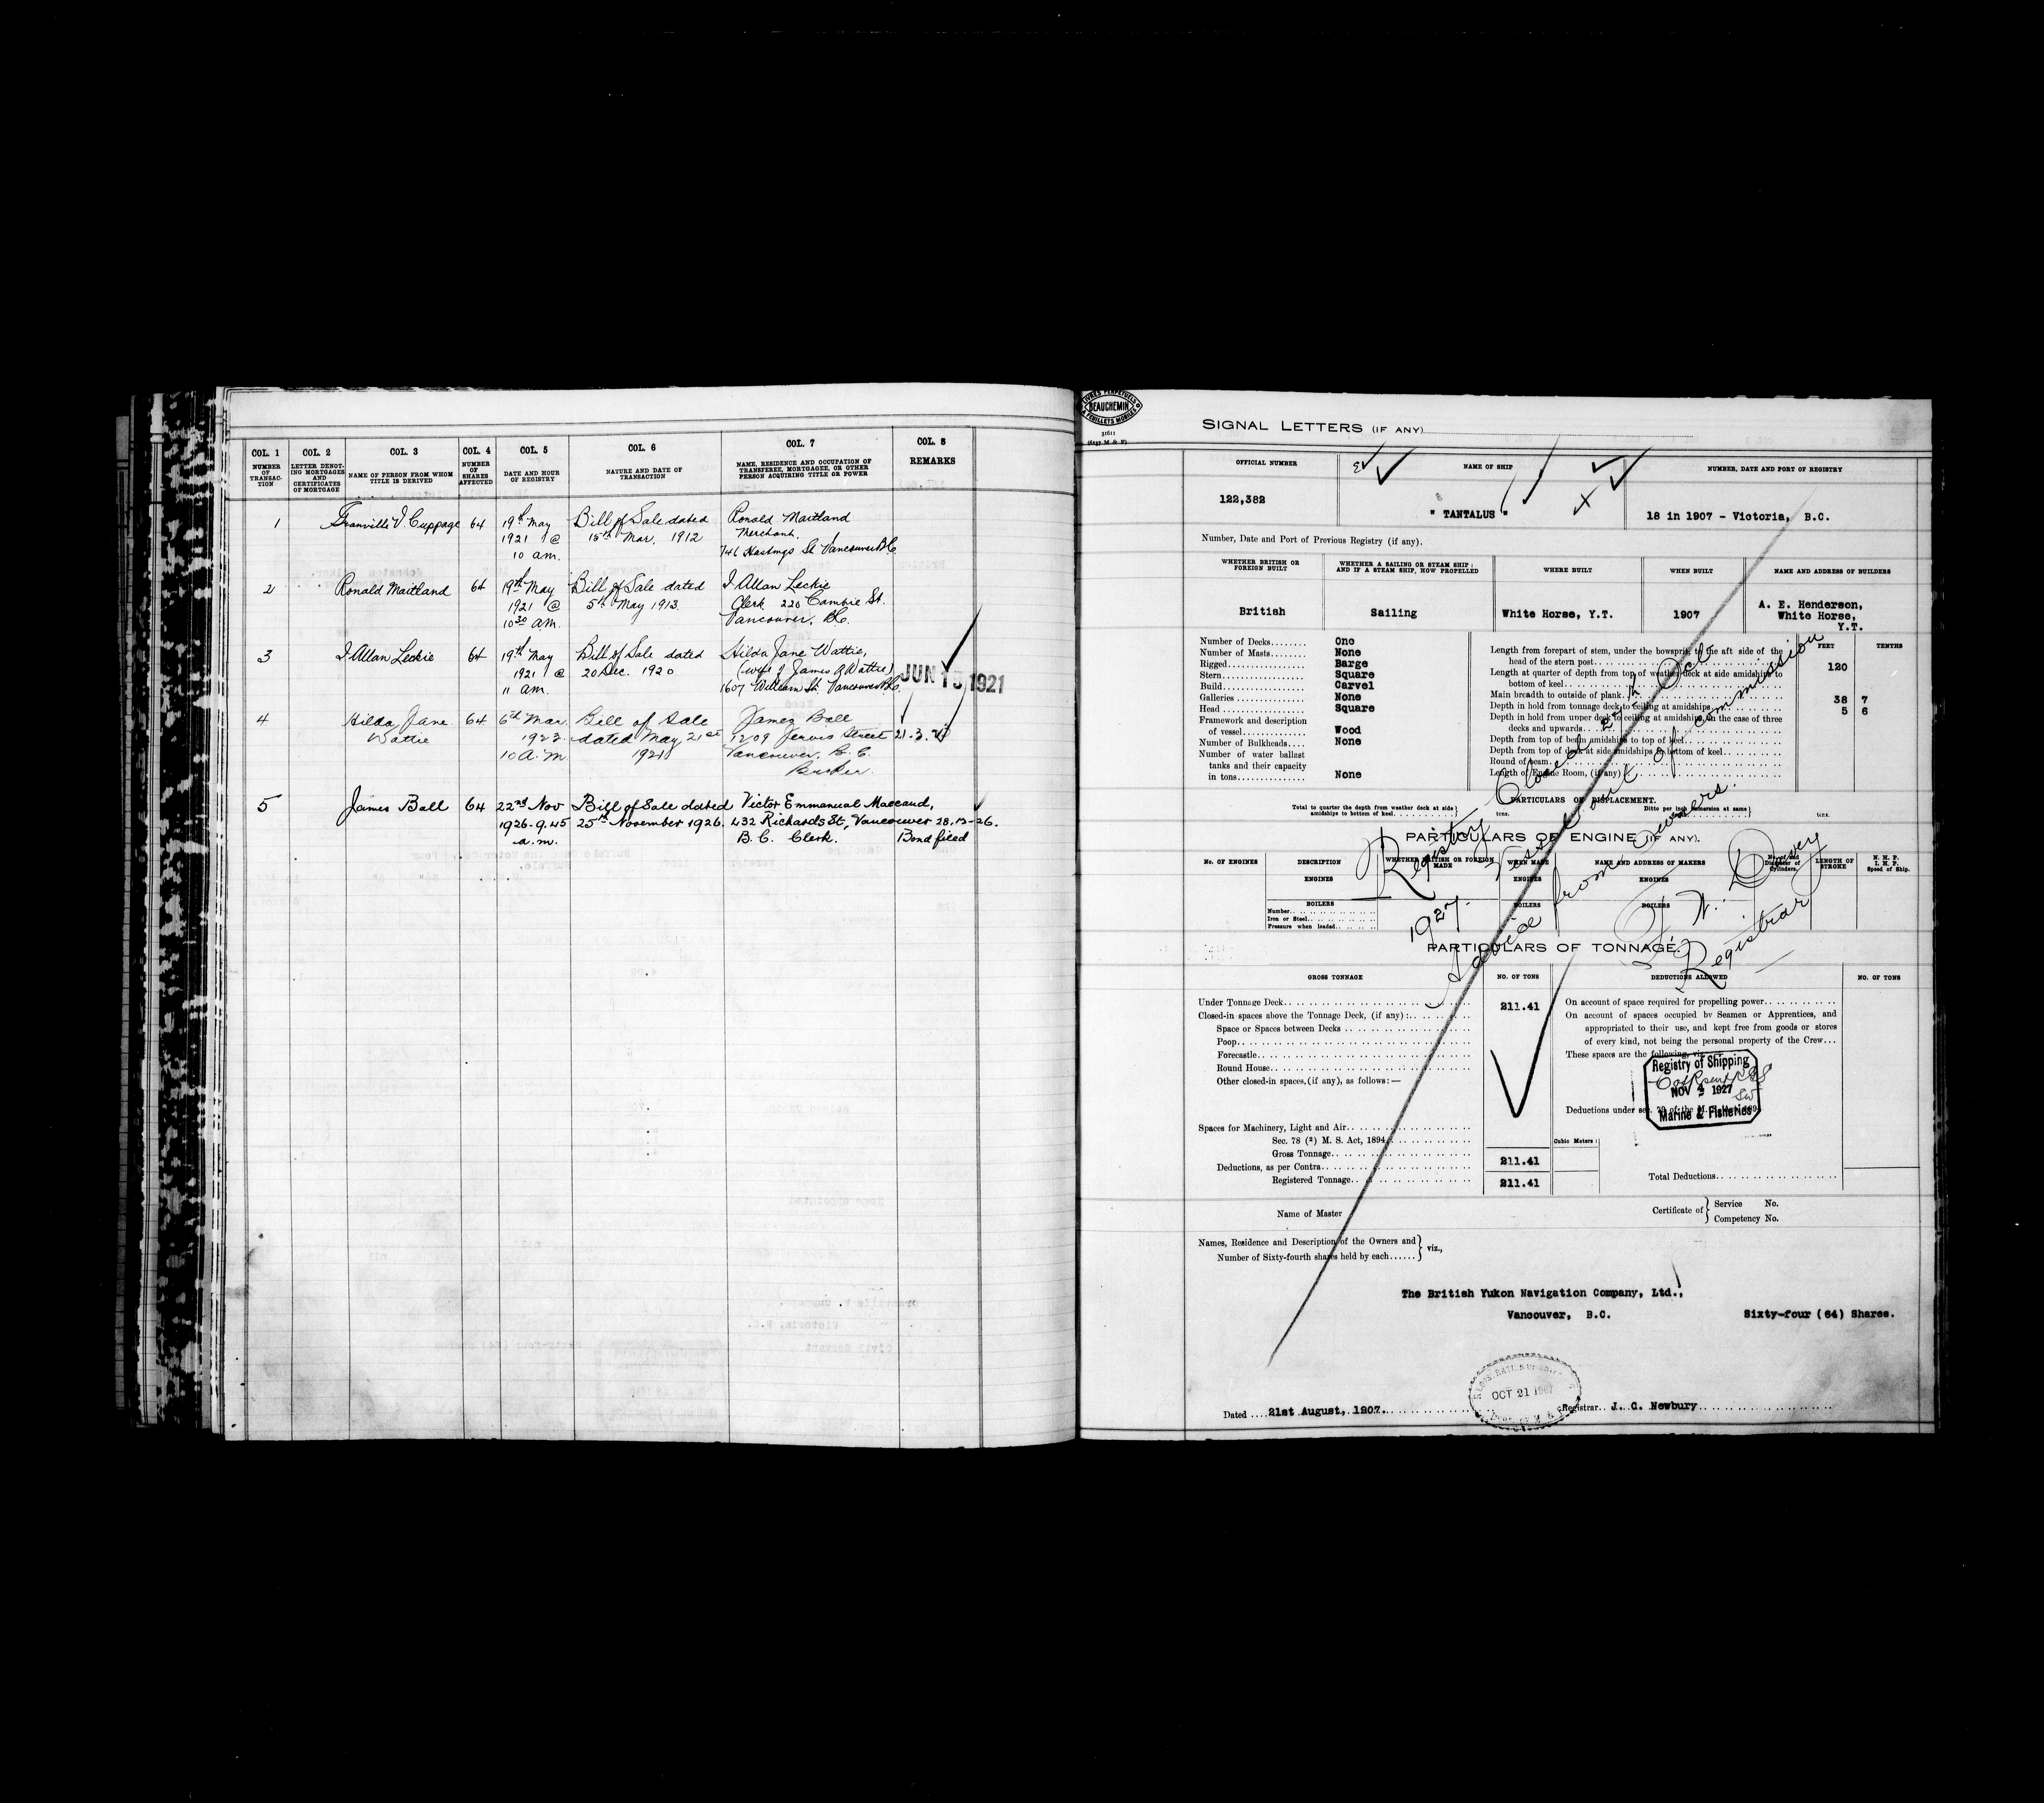 COL. 1 COL. 2 COL. 3 COL. 4 COL. 5 COL. 6 COL. 7 COL. 8
NUMBER OF TRANSAC-TION
LETTER DENOT-ING MORTGAGES AND CERTIFICATES OF MORTGAGE
NAME OF PERSON FROM WHOM TITLE IS DERIVED
NUMBER OF SHARES AFFECTED
DATE AND HOUR OF REGISTRY
NATURE AND DATE OF TRANSACTION
NAME, RESIDENCE AND OCCUPATION OF TRANSFEREE, MORTGAGEE, OR OTHER PERSON ACQUIRING TITLE OR POWER
REMARKS
1 Granville V. Cuppage 64 19th May Bill of Sale dated Ronald Maitland
1921 @ 15th Mar, 1912 Merchant,
10 am. 746 Hastings St Vancouver B.C.
2 Ronald Maitland 64 19th May Bill of Sale dated I Allan Leckie
1921 @ 5th May 1913. Clerk 220 Cambie St.
10 30 am. Vancouver, B.C.
3 I Allan Leckie 64 19th May Bill of Sale dated Hilda Jane Wattie,
1921 @ 20 Dec. 1920 (wife of James A Wattie)
11 am. 1607 William St. Vancouver B.C.
JUN 15 1921
4 Hilda Jane 64 6th Mar. Bill of Sale James Ball
Wattie 1922. dated May 21st 1209 Jervis Street 21.3.
10 A.M. 1921 Vancouver, B.C.
Broker.
5 James Ball 64 22nd Nov Bill of Sale dated Victor Emmanual Maccaud,
1926. 9.45 25th November 1926. 432 Richards St, Vancouver 28.12-26.
a.m. B.C. Clerk. Bond filed
LIVRES PERPETUELS
BEAUCHEMIN
A FEUILLETS MOBILES
31611
SIGNAL LETTERS (IF ANY)
OFFICIAL NUMBER NAME OF SHIP NUMBER, DATE AND PORT OF REGISTRY
122,382 " TANTALUS " 18 in 1907 - Victoria, B.C.
Number, Date and Port of Previous Registry (if any).
WHETHER BRITISH OR FOREIGN BUILT
WHETHER A SAILING OR STEAM SHIP; AND IF A STEAM SHIP, HOW PROPELLED
WHERE BUILT WHEN BUILT NAME AND ADDRESS OF BUILDERS
British Sailing White Horse, Y.T. 1907 A. E. Henderson,
White Horse,
Y.T.
Number of Decks One
Number of Masts None
Rigged Barge
Stern Square
Build Carvel
Galleries None
Head Square
Framework and description
of vessel Wood
Number of Bulkheads None
Number of water ballast
tanks and their capacity
in tons None
FEET TENTHS
Length from forepart of stem, under the bowsprit, to the aft side of the
head of the stern post 120
Length at quarter of depth from top of weather deck at side amidships to
bottom of keel
Main breadth to outside of plank 38 7
Depth in hold from tonnage deck to ceiling at amidships 5 6
Depth in hold from upper deck to ceiling at amidships, in the case of three
decks and upwards
Depth from top of beam amidships to top of keel
Depth from top of deck at side amidships to bottom of keel
Round of beam
Length of Engine Room, (if any)
PARTICULARS OF DISPLACEMENT.
Total to quarter the depth from weather deck at side amidships to bottom of keel tons. Ditto per inch immersion at same tons.
PARTICULARS OF ENGINE (IF ANY).
No. OF ENGINES DESCRIPTION WHETHER BRITISH OR FOREIGN MADE WHEN MADE NAME AND ADDRESS OF MAKERS No. of and Diameter of Cylinders. LENGTH OF STROKE N. H. P. I. H. P. Speed of Ship.
ENGINES ENGINES ENGINES
BOILERS BOILERS BOILERS
Number
Iron or Steel
Pressure when loaded
Registry Closed 29th Oct.
1927. Vessel out of commission
Advice from Owners.
Registrar
PARTICULARS OF TONNAGE.
GROSS TONNAGE NO. OF TONS DEDUCTIONS ALLOWED NO. OF TONS
Under Tonnage Deck 211.41
Closed-in spaces above the Tonnage Deck, (if any):
Space or Spaces between Decks
Poop
Forecastle
Round House
Other closed-in spaces, (if any), as follows:—
Spaces for Machinery, Light and Air
Sec. 78 (2) M. S. Act, 1894
Gross Tonnage 211.41
Deductions, as per Contra
Registered Tonnage 211.41
Cubic Meters:
On account of space required for propelling power
On account of spaces occupied by Seamen or Apprentices, and
appropriated to their use, and kept free from goods or stores
of every kind, not being the personal property of the Crew
These spaces are the following, viz.
Registry of Shipping
NOV 2 1927
Marine & Fisheries
Deductions under sec. 79 of the M. S. Act, 1894
Total Deductions
Name of Master
Certificate of Service No.
Competency No.
Names, Residence and Description of the Owners and
Number of Sixty-fourth shares held by each viz.,
The British Yukon Navigation Company, Ltd.,
Vancouver, B.C. Sixty-four (64) Shares.
OCT 21 1907
Dated 21st August, 1907. Registrar J. C. Newbury